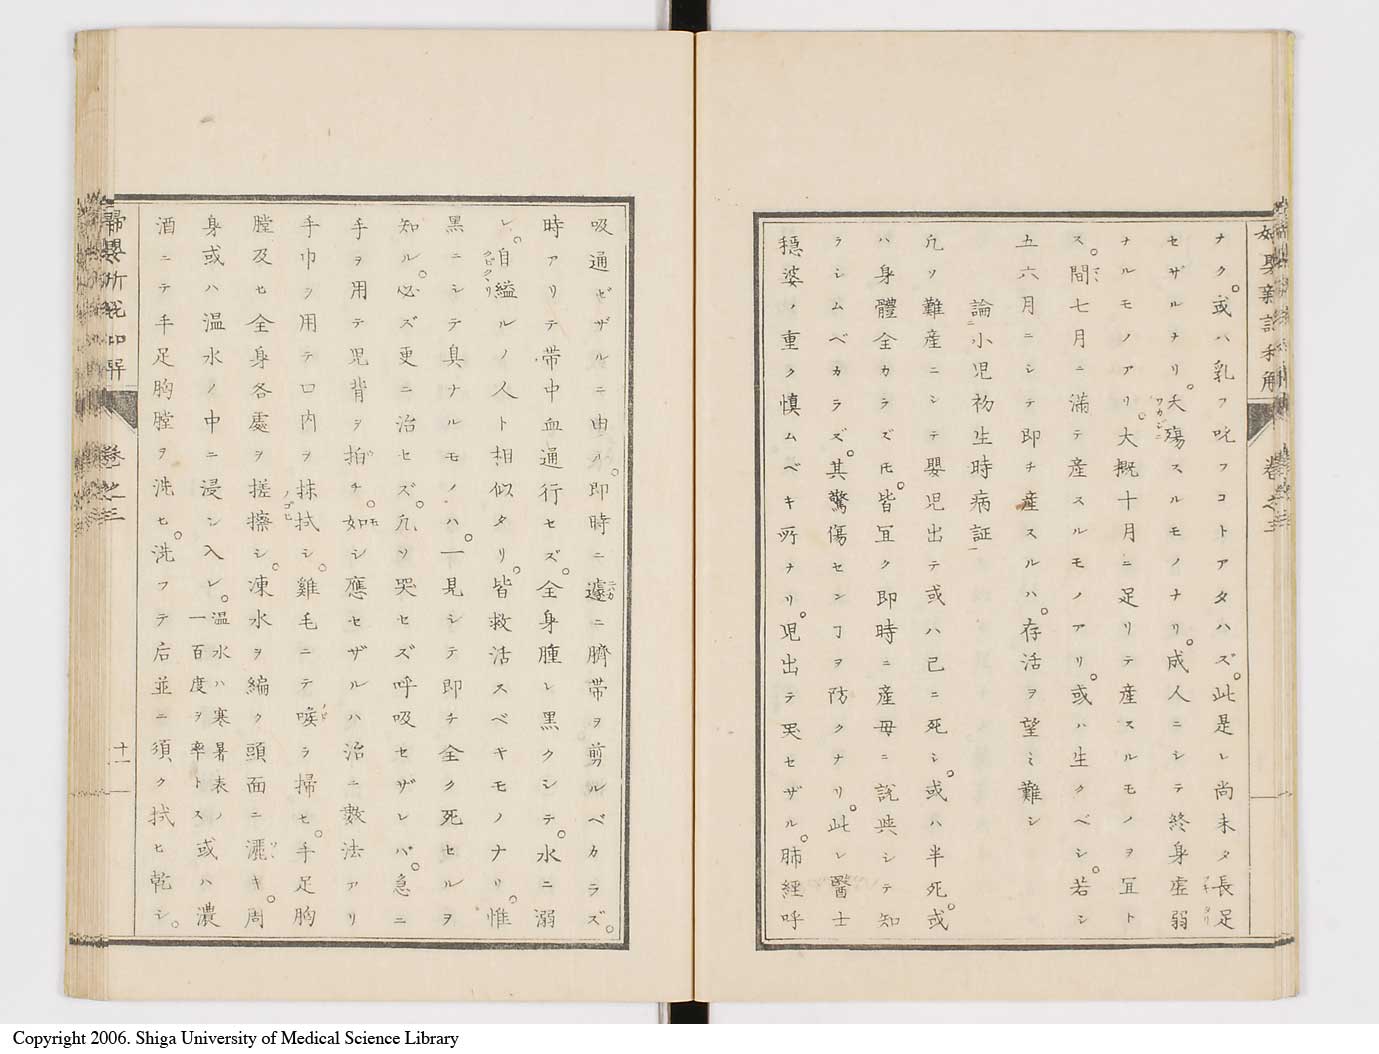 ナク。或ハ乳フ吮フコトアタハズ。此是レ尚未タ長足
セザルナリ。夭殤スルモノナリ。成人ニシテ終身虚弱
ナルモノアリ。大概十月ニ足リテ産スルモノヲ冝ト
ス。間七月ニ滿テ産スルモノアリ。或ハ生クベシ。若シ
五六月ニシテ即チ産スルハ。存活ヲ望ミ難シ
論小児初生時病証
凢ソ難産ニシテ嬰児出テ或ハ己ニ死シ。或ハ半死。或
ハ身體全カラズ𪜈。皆冝ク即時ニ産母ニ説與シテ知
ラシムベカラズ。其驚傷センヿヲ防クナリ。此レ醫士
穏婆ノ重ク慎ムベキ所ナリ。児出テ哭セザル。肺經呼
吸通ゼザルニ由ル。即時ニ遽ニ臍帯ヲ剪ルベカラズ。
時アリテ帯中血通行セズ。全身腫レ黒クシテ。水ニ溺
レ。自縊ルノ人ト相似タリ。皆救活スベキモノナリ。惟
黒ニシテ臭ナルモノハ。一見シテ即チ全ク死セルヲ
知ル。必ズ更ニ治セズ。凢ソ哭セズ呼吸セザレバ。急ニ
手ヲ用テ児背ヲ拍チ。如シ應セザルハ治ニ數法アリ
手巾ヲ用テ口内ヲ抹拭シ。雞毛ニテ喉ラ掃セ。手足胸
膛及セ全身各處ヲ搓擦シ。凍水ヲ編ク頭面ニ灑キ。周
身或ハ温水ノ中ニ浸シ入レ。温水ハ寒暑表ノ
一百度ヲ率トス或ハ濃
酒ニテ手足胸膛ヲ洗ヒ。洗フテ后並ニ須ク拭ヒ乾シ。
巻之三
十一
Copyright 2006. Shiga University of Medical Science Library